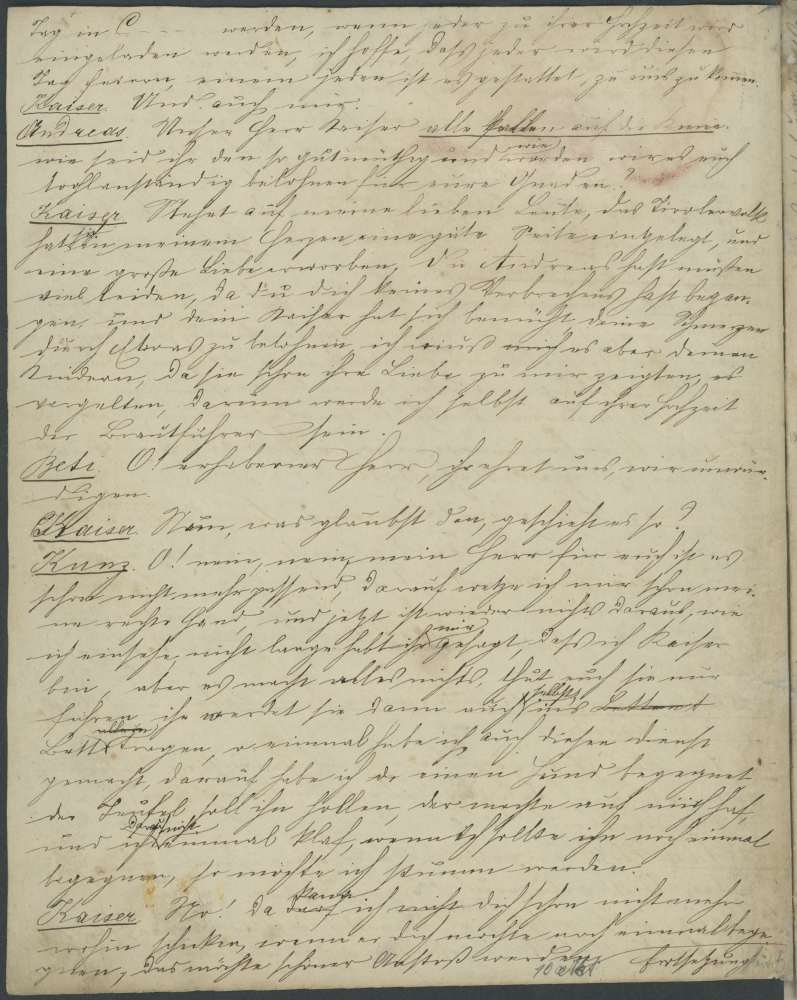 Tag in C - - - werden, wenn jeder zu ihrer Hochzeit wird
eingeladen werden, ich hoffe, daß jeder wird diesen
Tag feiern, einem jeden ist es gestattet, zu uns zu kommen.
Kaiser. Und auch mir.
Andreas. Unser Herr Kaiser alle fallen auf die Knie.
wie seid ihr den so gutmüthig und wie werden wir es euch
wohlanständig belohnen für eure Gnaden?
Kaiser Stehet auf meine lieben Leute, das Tirolervolk
hat sich in meinem Herzen eine gute Seite eingelegt, und
eine große Liebe erworben, Du Andreas hast müßen
viel leiden, da du dich keines Verbrechens hast began-
gen, und dein Kaiser hat sich bemüht deine Schmerzen
durch Etwas zu belohnen, ich muß es aber deinen
Kindern, da sie schon ihre Liebe zu mir zeigten, es
vergelten, darum werde ich selbst auf ihrer Hochzeit
der Brautführer sein.
Beti. O! erhabener Herr, ihr ehret uns, wir unwür-
digen.
Kaiser. Nun, was glaubst du, geschieht es so?
Kunz. O! nein, nein, mein Herr für euch ist es
schon nicht mehr passend, darauf wetze ich mir schon mei-
ne rechte Hand, und jetzt ist wieder nichts daraus, wie
ich einsehe, nicht lange habt ihr mir gesagt, daß ich Kaiser
bin, aber es macht alles nichts, thut euch sie nur
führen, ihr werdet sie dann auch selbst ins
Bett tragen, o einmal habe ich auch diesen Dienst
gemacht, darauf habe ich da einen Hund begegnet
der Teufel soll ihn hollen, der machte auf mich haf,
und ich einmal klaf, wenn ich sollte ihn noch einmal
begegnen, so möchte ich stumm werden.
Kaiser No! da kann ich nicht dich schon nicht mehr
wohin schicken, wenn er dich möchte noch einmal bege
gnen, das möchte schöner Anstoß werden. Fortsetzung
10